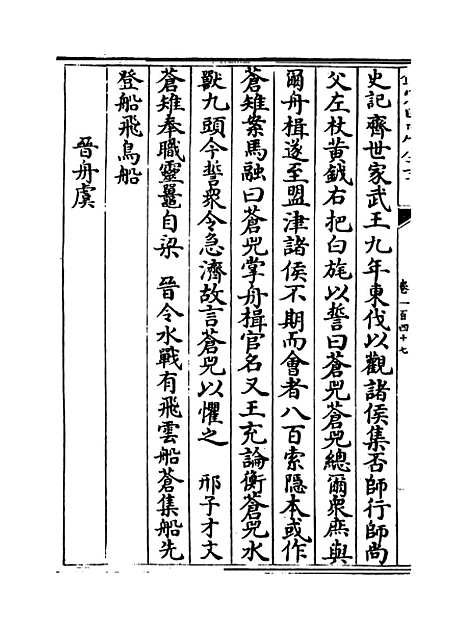 史記齊世家武王九年東伐以觀諸侯集否師行師尚
父左杖黄鉞右把白旄以誓曰蒼兕蒼兕總爾衆庶與
爾舟楫遂至盟津諸侯不期而會者八百索隠本或作
蒼雉案馬融曰蒼兕掌舟楫官名又王充論衡蒼兕水
獸九頭今誓衆令急濟故言蒼兕以懼之 邢子才文
蒼雉奉職靈鼉自梁 晉令水戰有飛雲船蒼隼船先
登船飛鳥船
晉舟虞
卷一百四十七